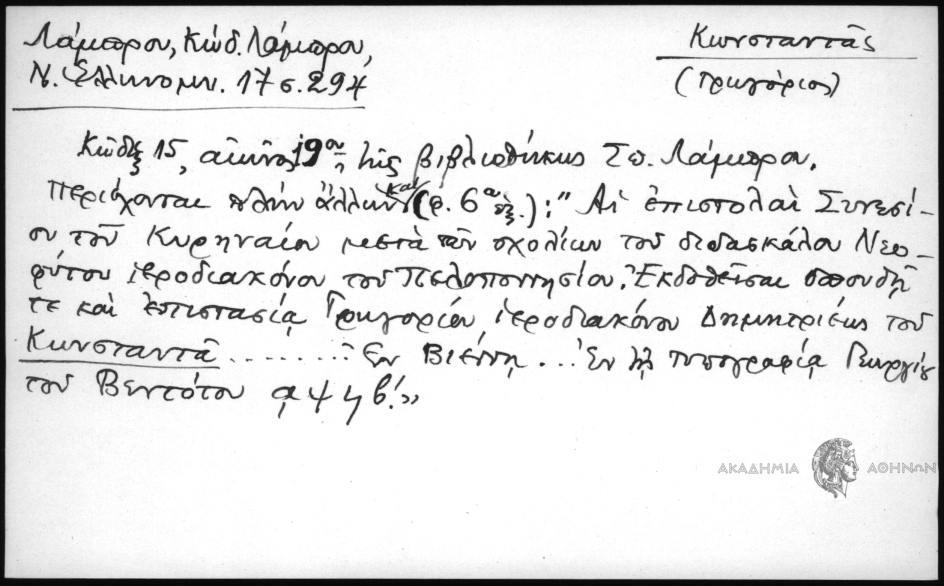 Λάμπρου, Κώδ. Λάμπρου,
Ν. Ἑλληνομν. 17 σ. 294
Κωνσταντᾶς
(Γρηγόριος)
Κώδιξ 15, αἰῶνος 19ου, τῆς βιβλιοθήκης Σπ. Λάμπρου.
Περιέχονται πλὴν ἄλλων καὶ (φ. 6α ἑξ.): "Αἱ ἐπιστολαὶ Συνεσί-
ου τοῦ Κυρηναίου μετὰ τῶν σχολίων τοῦ διδασκάλου Νεο-
φύτου ἱεροδιακόνου τοῦ Πελοποννησίου. Ἐκδοθεῖσαι σπουδῇ
τε καὶ ἐπιστασίᾳ Γρηγορίου ἱεροδιακόνου Δημητριέως τοῦ
Κωνσταντᾶ ........ Ἐν Βιέννῃ... Ἐν τῇ τυπογραφίᾳ Γεωργίου
τοῦ Βεντότου ͵αψϟβ΄."
ΑΚΑΔΗΜΙΑ ΑΘΗΝΩΝ